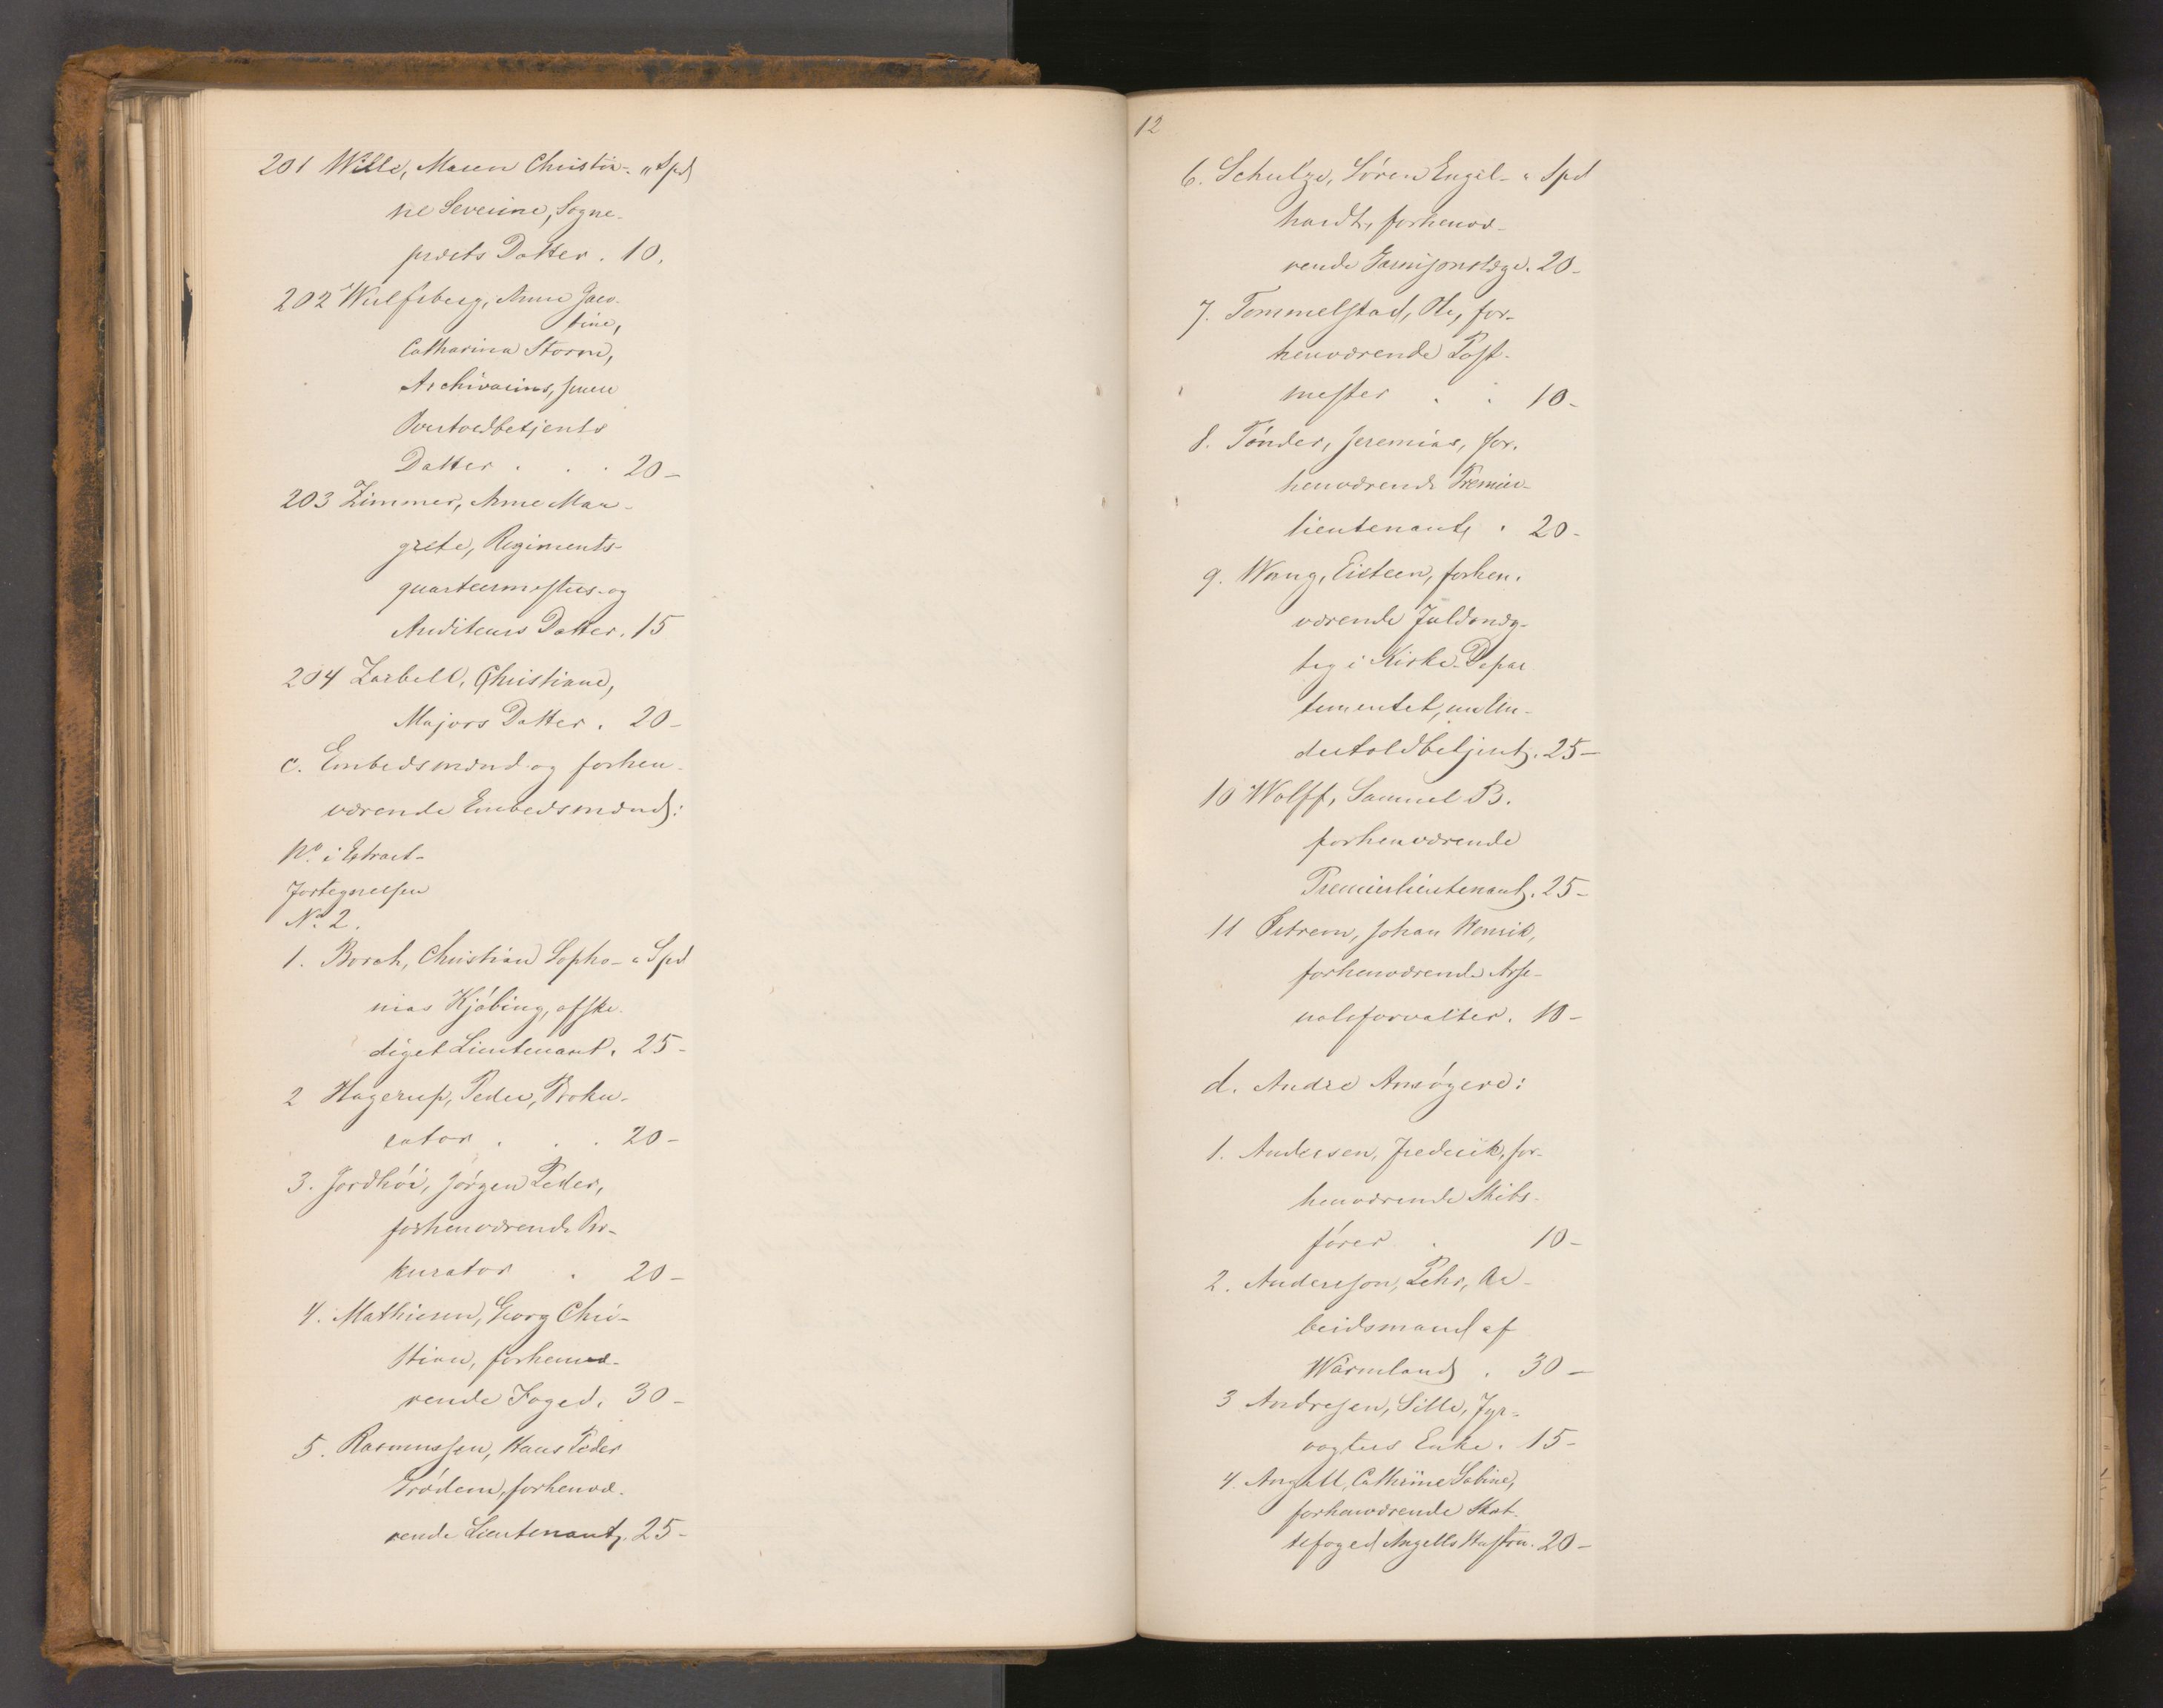 201 Wille, Maren Christia- " Spd
ne Severine, Sogne-
præsts Datter. 10.
202 Wulfsberg, Anne Jaco-
bine,
Catharina Storm,
Archivarius, senere
Overtoldbetjents
Datter . . . 20 -
203 Zimmer, Anne Mar-
grete, Regiments-
quarteermesters- og
Auditeurs Datter. 15
204 Zarbell, Christiane,
Majors Datter. 20 -
c. Embedsmænd og forhen-
værende Embedsmænd:
No. i Extract-
Fortegnelsen
No. 2.
1. Borch, Christian Sopho- " Spd
nias Kjöbing, afske-
diget Lieutenant. 25 -
2 Hagerup, Peder, Proku-
rator . . . 20 -
3. Jordhöi, Jörgen Peder,
forhenværende Pro-
kurator . 20 -
4. Mathiesen, Georg Chri-
stian, forhenvæ-
rende Foged. 30 -
5. Rasmussen, Hans Peder
Grödem, forhenvæ-
rende Lieutenant. 25 -
12
6. Schulze, Sören Engel- " Spd
hardt, forhenvæ-
rende Garnisonslæge. 20 -
7. Tommelstad, Ole, for-
henværende Post-
mester . . 10 -
8. Tönder, Jeremias, for-
henværende Premier-
lieutenant . 20 -
9. Wang, Eisteen, forhen-
værende Fuldmæg-
tig i Kirke-Depar
tementet, nu Un-
dertoldbetjent. 25 -
10 Wolff, Samuel B.
forhenværende
Premierlieutenant. 25 -
11 Östrem, Johan Henrik,
forhenværende Arse-
nalsforvalter. 10 -
d. Andre Ansögere:
1. Andersen, Frederik, for-
henværende Skibs-
förer . 10 -
2. Andersson, Pehr, Ar-
beidsmand af
Wärmland . 30 -
3 Andresen, Sille, Fyr-
vogters Enke. 15 -
4. Angell, Cathrine Sabine,
forhenværende Skat-
tefoged Angells Hustru. 20 -